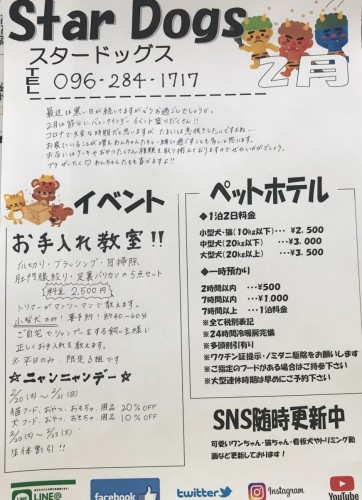 Star Dogs
スタードッグス
TEL 096-284-1717
2月
最近は寒い日が続いてますがどうお過ごしでしょうか。
2月は節分にバレンタインデーイベント盛りだくさん!!
コロナで大変な時期だと思いますが、たまには息抜きしたいですよね...
お家にいることが増えわんちゃんたちと一緒に過ごすことも多いと思います。
お店にはケーキやおやつたくさん種類を取り揃えておりますのでぜひいかがでしょう。
プチぜいたく♡わんちゃんたちも喜びますよ!!
イベント
お手入れ教室!!
爪切り・ブラッシング・耳掃除
肛門腺絞り・足裏バリカンの5点セット
料金 2,500円
トリマーがマンツーマンで教えます。
小型犬のみ! 要予約! 約40~60分
ご自宅でシャンプーをする飼い主様に
正しいお手入れを教えます。
※平日のみ 限定3組です
☆ニャンニャンデー☆
2/20(土)~2/21(日)
猫フード、おやつ、おもちゃ、用品 20%OFF
犬フード、おやつ、おもちゃ、用品 10%OFF
2/20(土)~2/23(火)
生体割引!!
ペットホテル
◆1泊2日料金
小型犬・猫(10kg以下)・・・ ¥2.500
中型犬(20kg以下)・・・ ¥3.000
大型犬(20kg以上)・・・ ¥3.500
◆一時預かり
2時間以内・・・ ¥500
7時間以内・・・ ¥1.000
7時間以上・・・ 1泊料金
※全て税別表記
※24時間冷暖房完備
※多頭割引有り
※ワクチン証提示・ノミダニ駆除をお願いします
※ご指定のフードがある場合はご持参下さい
※大型連休時期は早めにご予約下さい
SNS随時更新中
可愛いワンちゃん・猫ちゃん・看板犬やトリミング動
画など更新しております!
LINE
LINE@
facebook
twitter
Instagram
YouTube